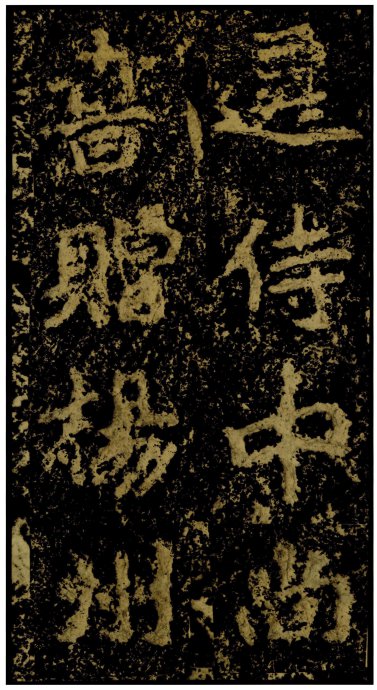 遷侍中尚
書贈楊州